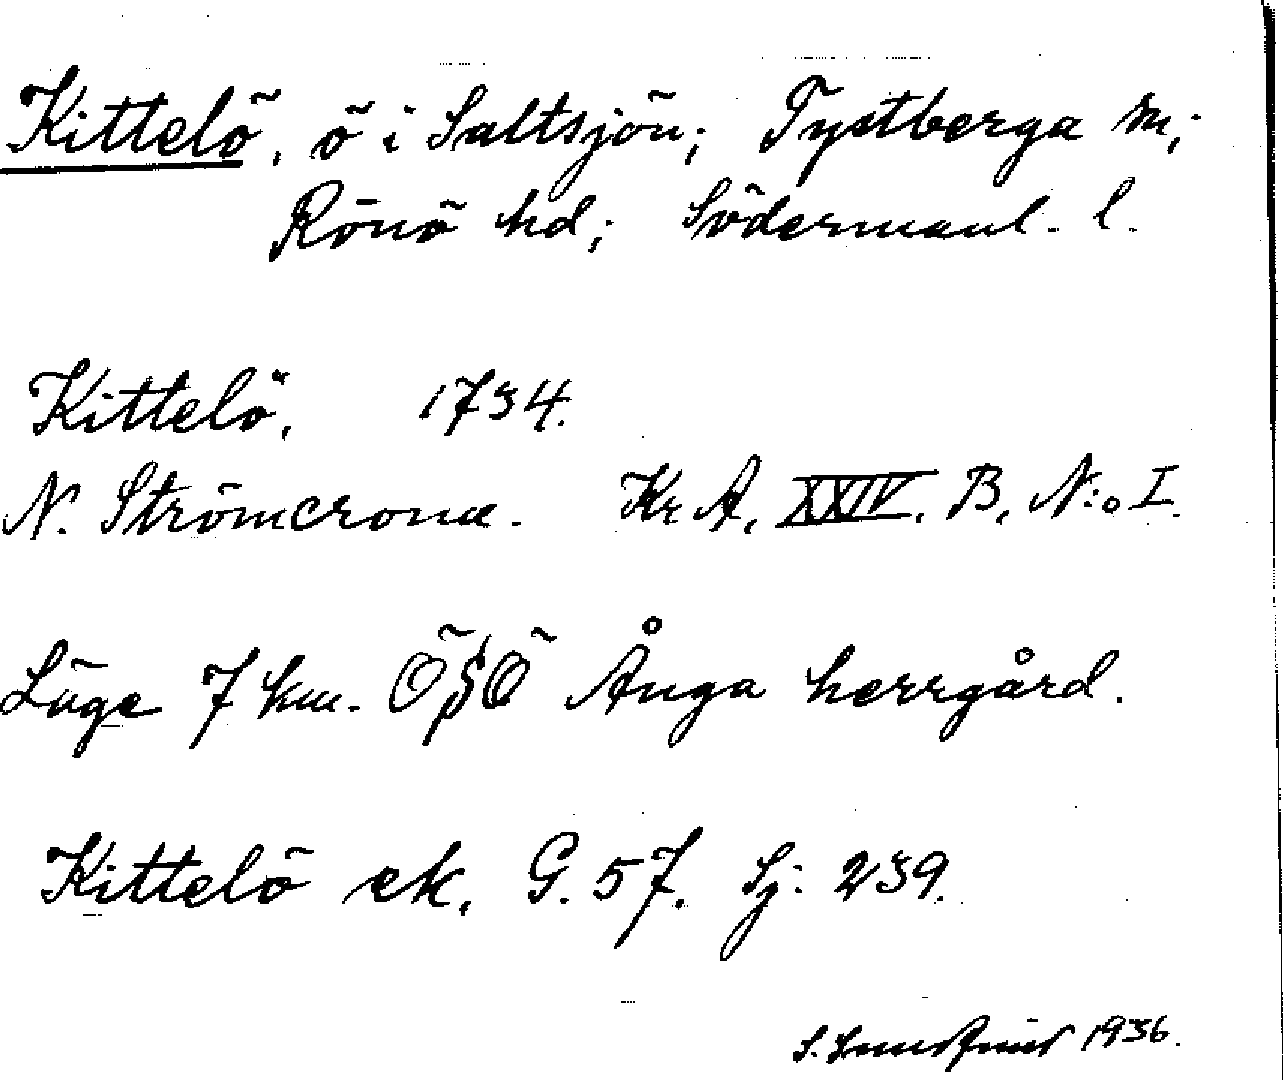 Kittelö, ö i Saltsjön; Tystberga sn;
Rönö hd; Södermanl. l.
Kittelö, 1734.
N. Strömcrona. Kr A, XXIV. B, N:o I.
Läge 7 km. ÖSÖ Ånga herrgård.
Kittelö ek. G. 57. Sj: 239.
S. 1936.